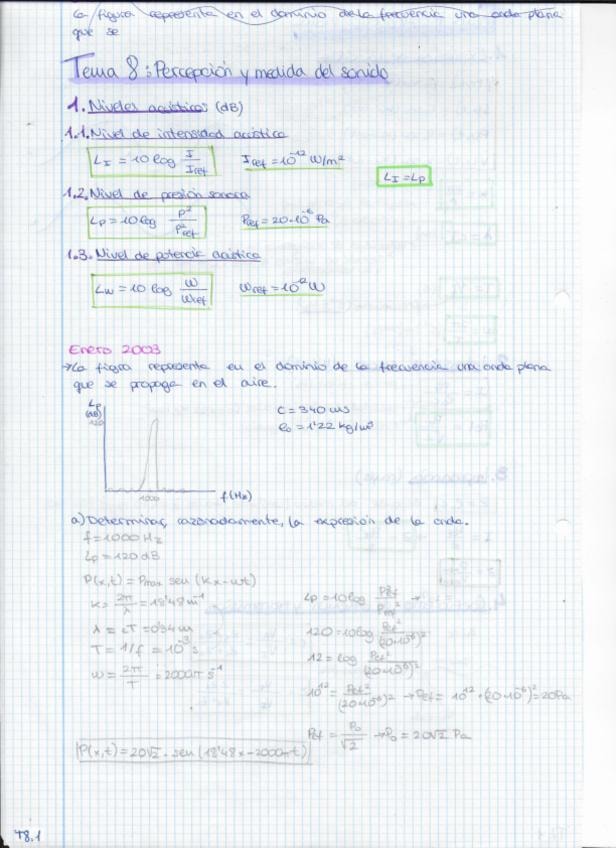 La figura representa en el dominio de la frecuencia una onda plana
que se
Tema 8: Percepción y medida del sonido
1. Niveles acústicos (dB)
1.1. Nivel de intensidad acústica
L_I = 10 log I/I_ref    I_ref = 10^-12 W/m²
L_I = L_P
1.2. Nivel de presión sonora
L_P = 10 log P²/P²_ref    P_ref = 20·10^-6 Pa
1.3. Nivel de potencia acústica
L_W = 10 log W/W_ref    W_ref = 10^-12 W
Enero 2003
→ La figura representa en el dominio de la frecuencia una onda plana
que se propaga en el aire.
L_P
(dB)
120
1000
f(Hz)
C = 340 m/s
ρ₀ = 1'22 kg/m³
a) Determinar, razonadamente, la expresión de la onda.
f = 1000 Hz
L_P = 120 dB
P(x,t) = P_max sen (Kx - ωt)
K = 2π/λ = 18'48 m^-1
λ = cT = 0'34 m
T = 1/f = 10^-3 s
ω = 2π/T = 2000π s^-1
L_P = 10 log P_ef²/P_ref² →
120 = 10 log P_ef²/(20·10^-6)²
12 = log P_ef²/(20·10^-6)²
10^12 = P_ef²/(20·10^-6)² → P_ef = 10^12 · (20·10^-6)² = 20 Pa
P_ef = P₀/√2 → P₀ = 20√2 Pa
P(x,t) = 20√2 · sen (18'48x - 2000πt)
T8.1